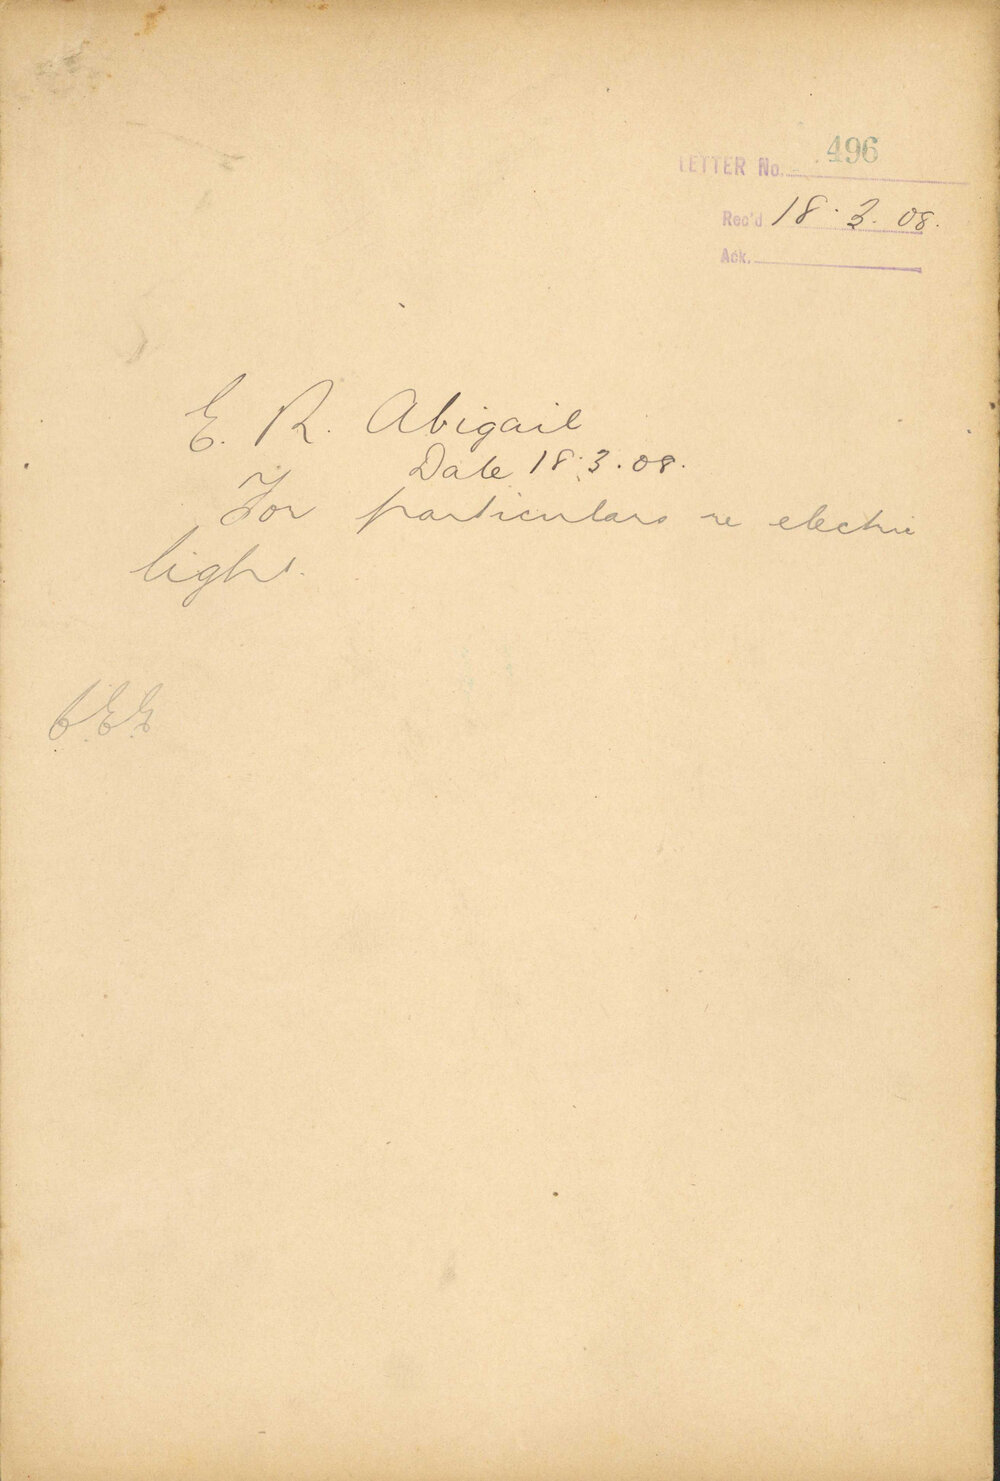 LETTER No. 496
Rec'd 18.3.08.
Ack.
E. R. Abigail
Date 18.3.08.
For particulars re electric
light.
C.E.E.